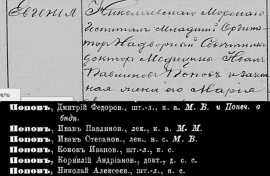 Евгенія
Николаевскаго Морского
Госпиталя Младшій Ордина
торъ Надворный Совѣтникъ
докторъ Медицины Иванъ
Павлиновъ Поповъ и закон
ная жена его Марія
Поповъ, Дмитрій Федоров., шт.-л., к. а. М. В. и Попеч. о
бѣдн.
Поповъ, Иванъ Павлинов., лек., к. а. М. М.
Поповъ, Иванъ Степанов., лек., н. с. М. В.
Поповъ, Конокъ Иванов., шт.-л., н. с.
Поповъ, Корнилій Андріанов., докт., д. с. с.
Поповъ, Николай Алексѣев., шт.-л., н. с.